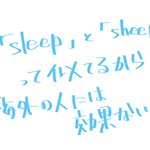 「sleep」と「sheep
って似てるから
海外の人には
効果ない